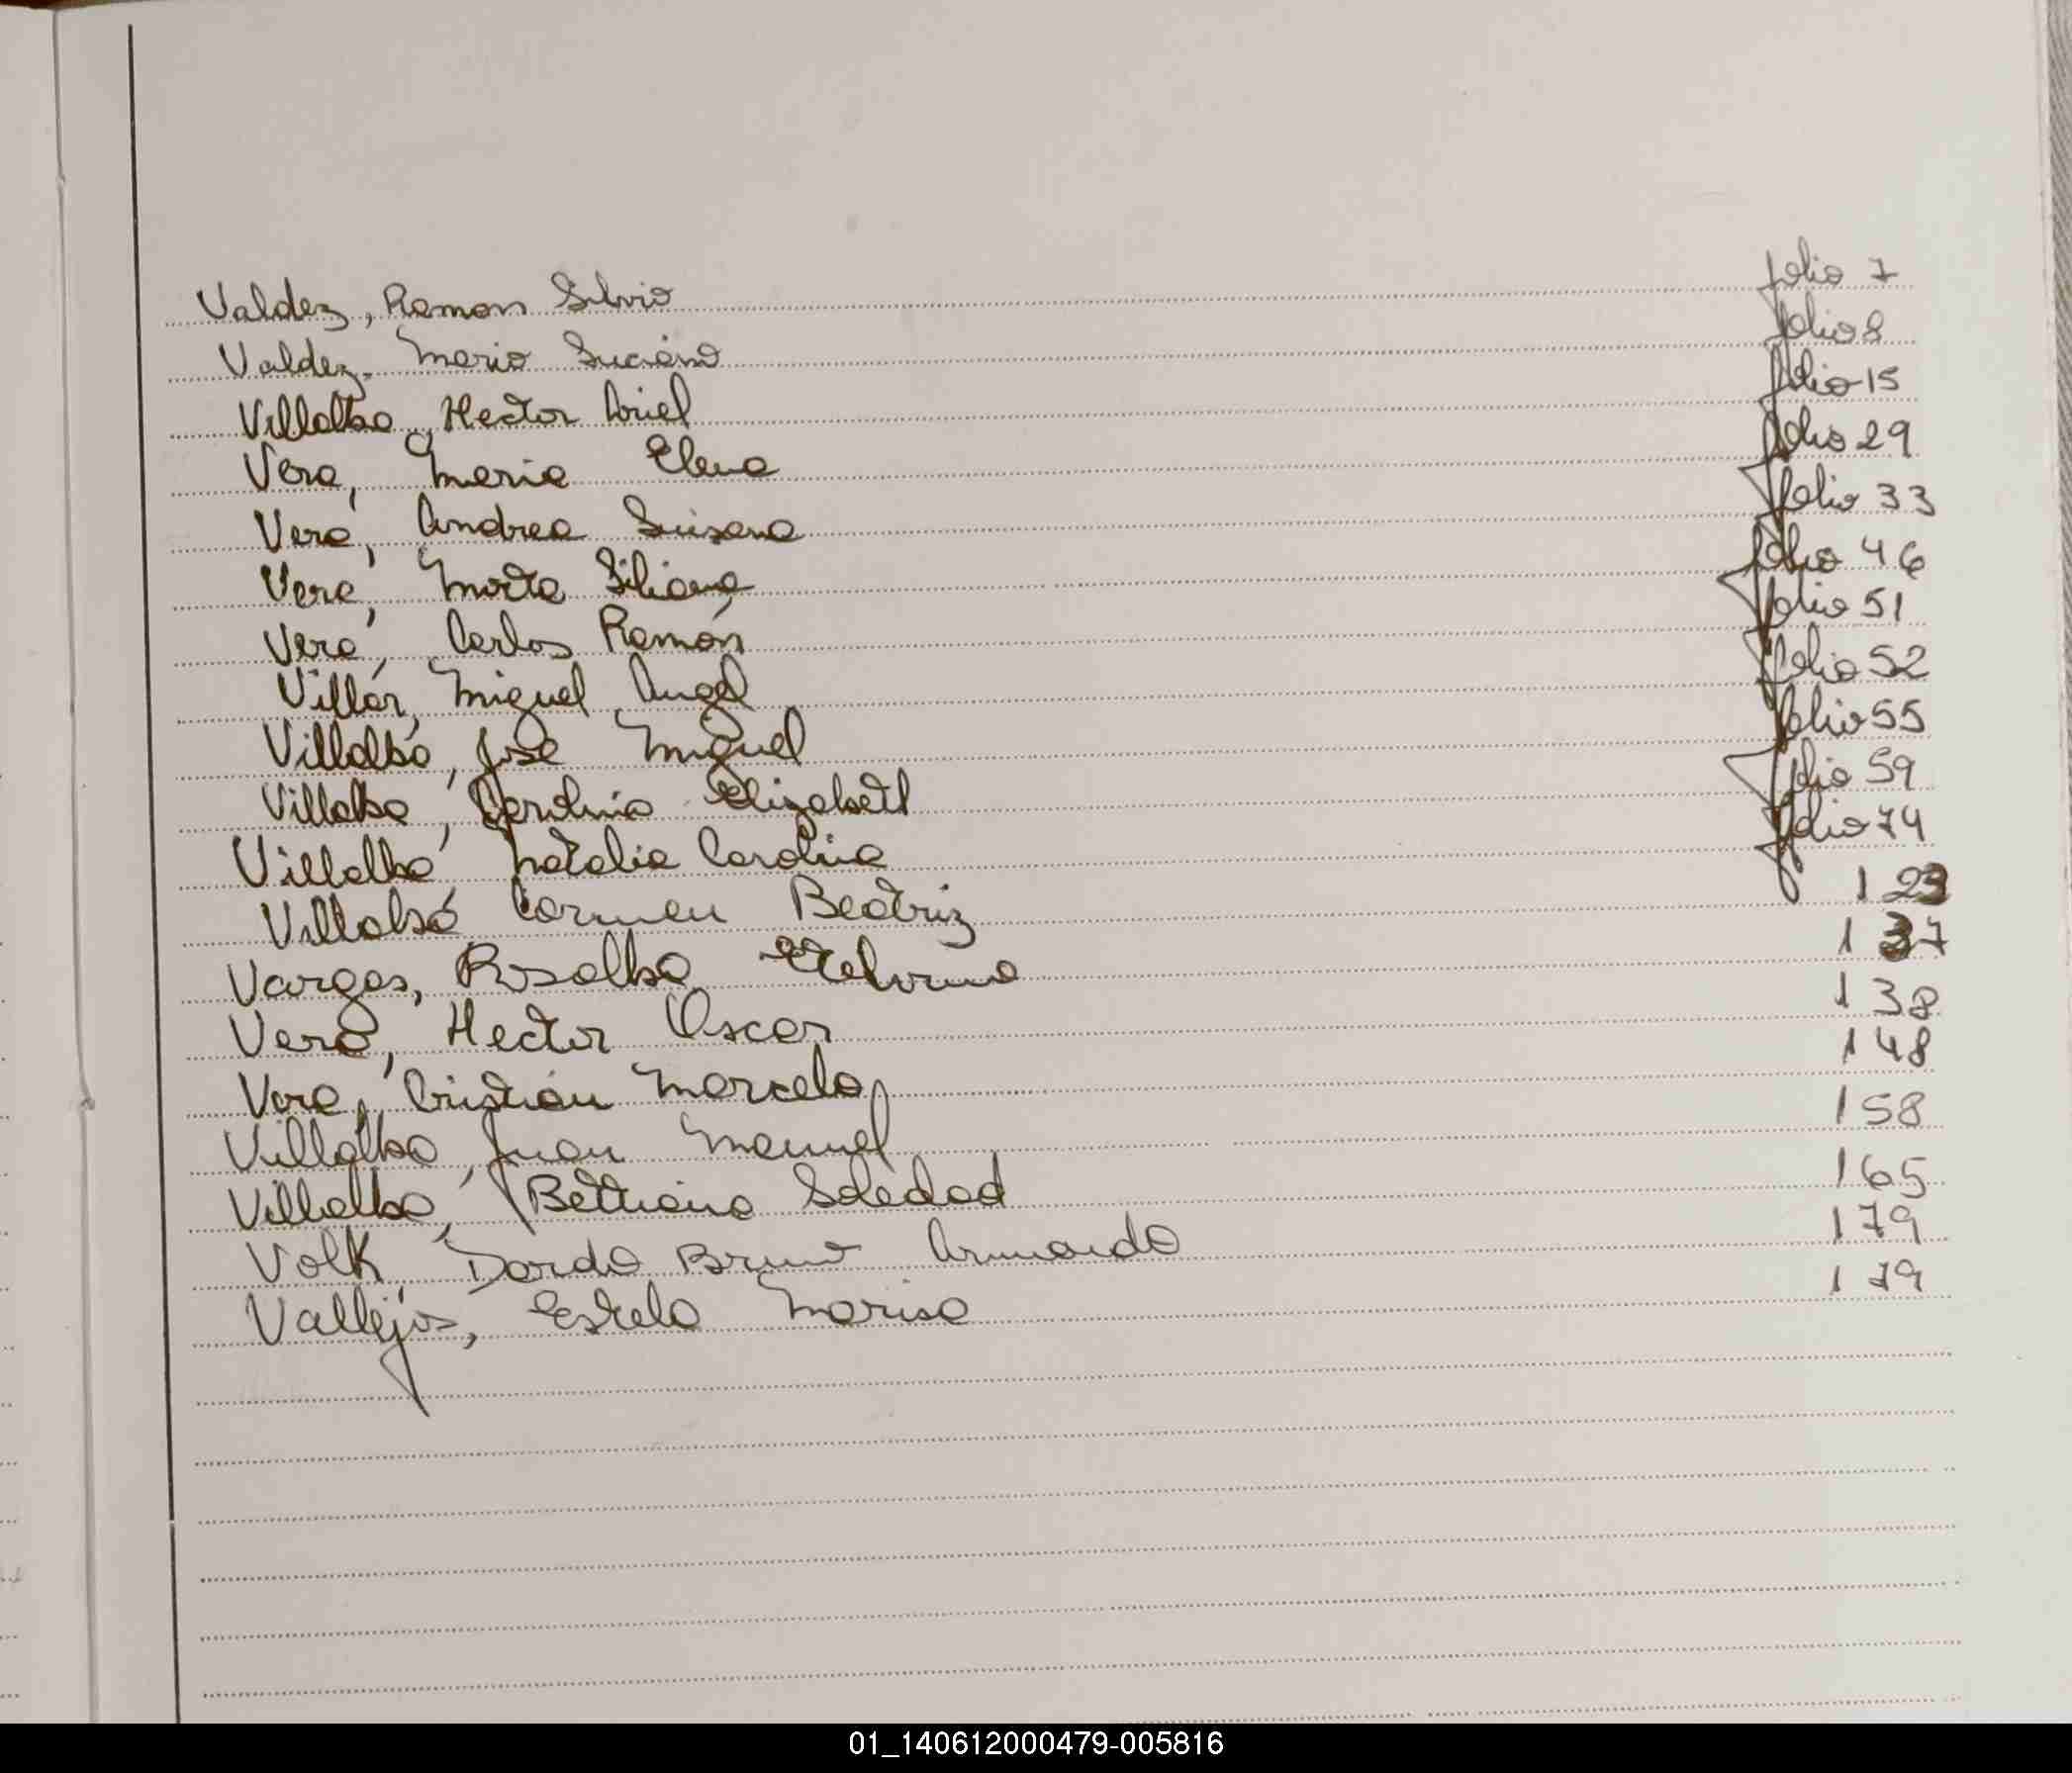 Valdez, Ramon Silvio folio 7
Valdez, Mario Luciano folio 8
Villalba, Hector Ariel folio 15
Vera, Maria Elena folio 29
Vera, Andrea Susana folio 33
Vera, Marta Liliana folio 46
Vera, Carlos Ramón folio 51
Villar, Miguel Angel folio 52
Villalba, José Miguel folio 55
Villalba, Carolina Elizabeth folio 59
Villalba, Natalia Carolina folio 74
Villalba Carmen Beatriz 123
Vargas, Rosalba 137
Vera, Hector Oscar 138
Vera, Cristian Marcelo 148
Villalba, Juan Manuel 158
Villalba, Bettiana Soledad 165
Volk, Dardo Bruno Armando 179
Vallejos, Estela Marisa 179
01_140612000479-005816